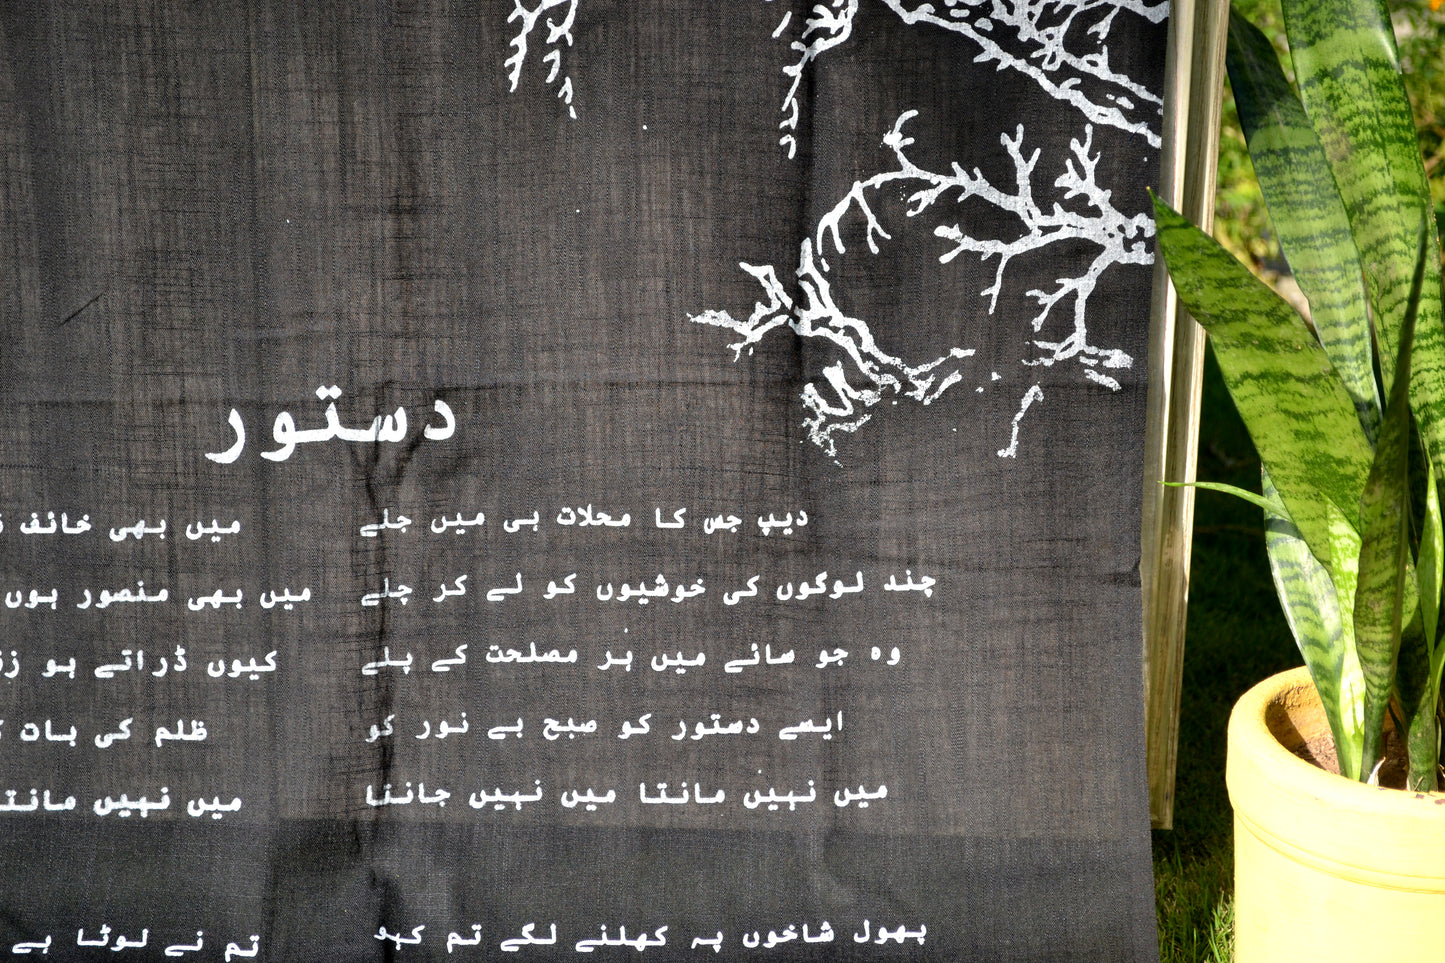 دستور
دیپ جس کا محلات ہی میں جلے
چند لوگوں کی خوشیوں کو لے کر چلے
وہ جو سائے میں ہر مصلحت کے پلے
ایسے دستور کو صبح بے نور کو
میں نہیں مانتا میں نہیں جانتا
پھول شاخوں پہ کھلنے لگے تم کہو
میں بھی خائف
میں بھی منصور ہوں
کیوں ڈراتے ہو
ظلم کی بات
میں نہیں مانتا
تم نے لوٹا ہے